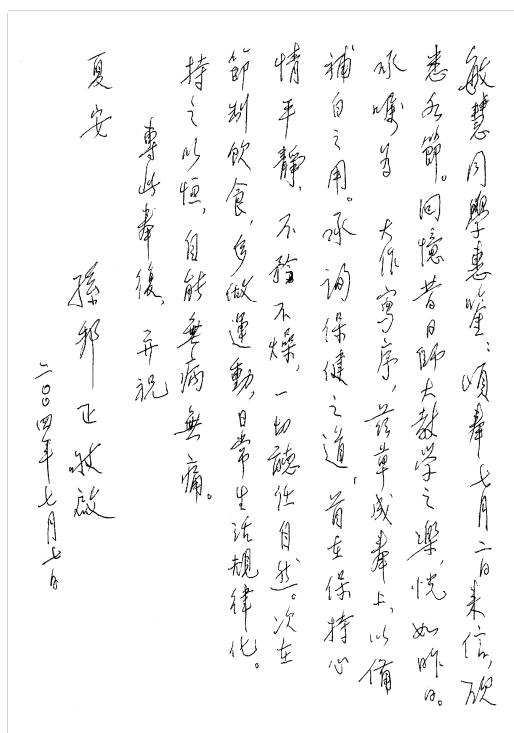 敏慧同學惠鑒：頃奉七月二日來信，欣
悉各節。回憶昔日師大教學之樂，恍如昨日。
承囑為　大作寫序，茲草成奉上，以備
補白之用。承詢保健之道，首在保持心
情平靜，不矜不燥，一切聽任自然。次在
節制飲食，多做運動，日常生活規律化。
持之以恒，自能無病無痛。
專此奉復，并祝
夏安
孫邦正敬啟
二○○四年七月七日